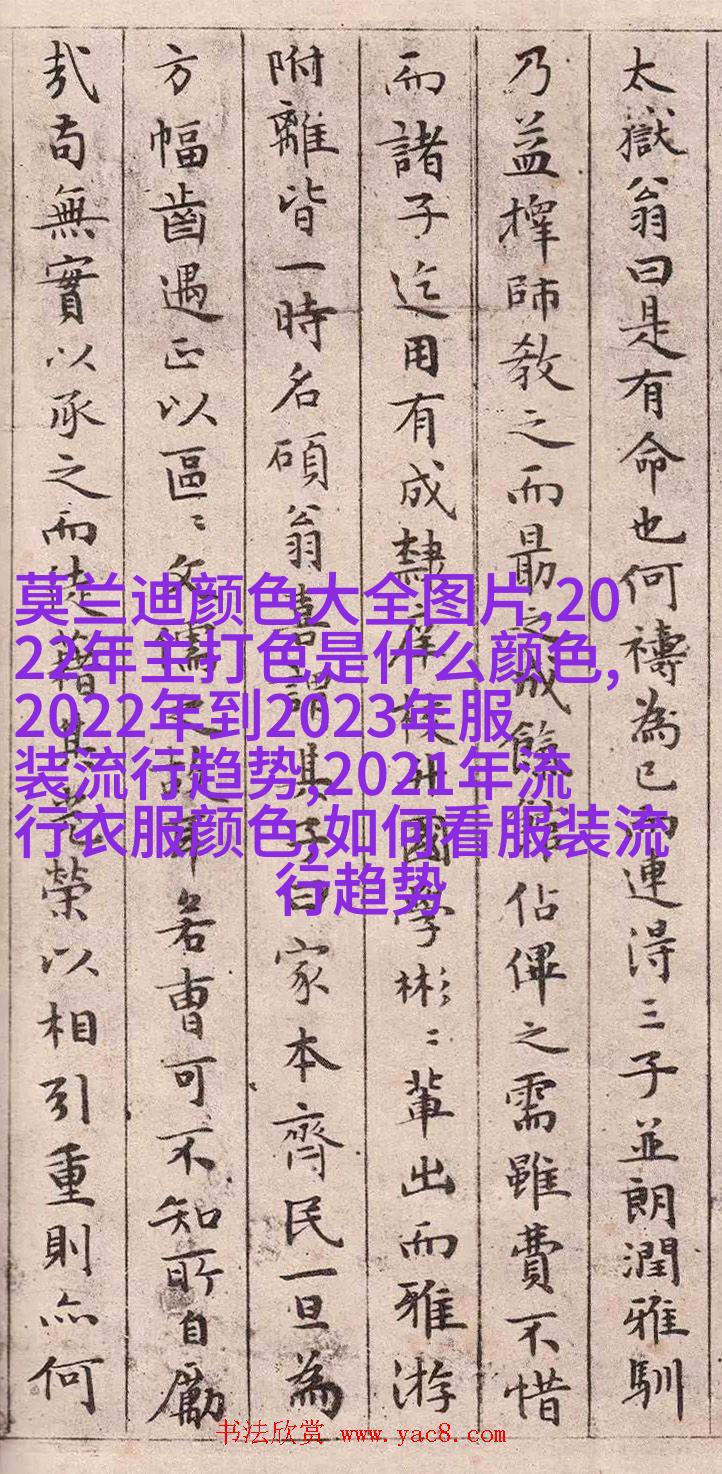 太嶽翁曰是有命也何禱為已而連得三子並朗潤雅馴
乃益擇師教之而最之成餼館佔俾之需雖費不惜
而諸子迄用有成隸庠校升國學彬〻輩出而雅游
附離皆一時名碩翁喜謂其子曰家本齊民一旦為
方幅齒遇正以區〻文儒之故耳若曹可不知所自勵
哉苟無實以承之而徒藉其光榮以相引重則亦何
莫兰迪颜色大全图片,20
22年主打色是什么颜色,
2022年到2023年服
装流行趋势,2021年流
行衣服颜色,如何看服装流
行趋势
书法欣赏 www.yac8.com